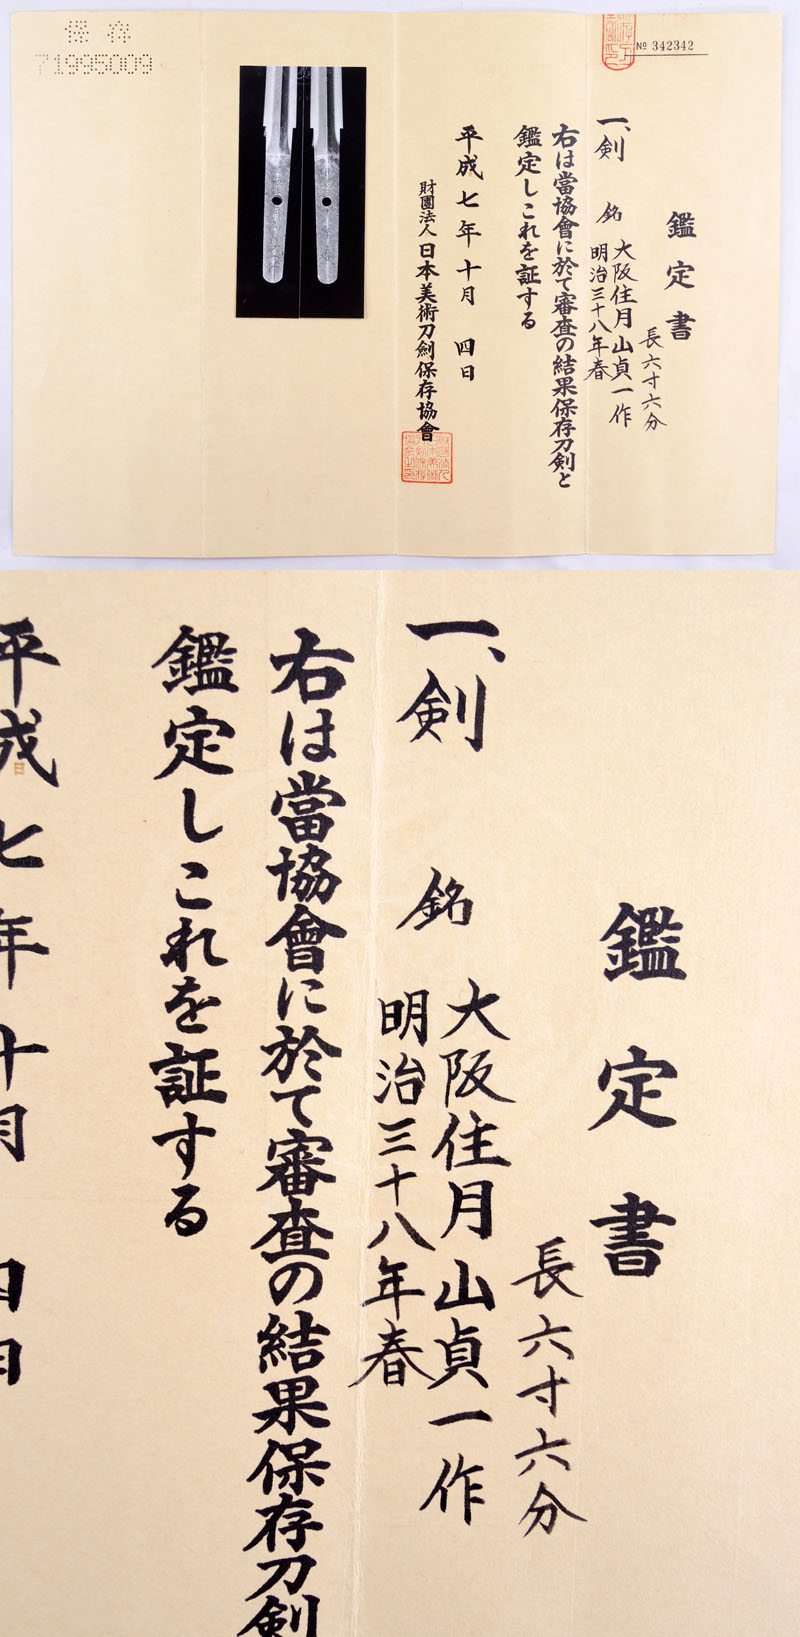 保存
71995009
№ 342342
鑑定書
長六寸六分
一、剣 銘 大阪住月山貞一作
明治三十八年春
右は當協會に於て審査の結果保存刀剣と
鑑定しこれを証する
平成七年十月四日
財團法人日本美術刀劍保存協會
鑑定書
長六寸六分
一、剣 銘 大阪住月山貞一作
明治三十八年春
右は當協會に於て審査の結果保存刀剣
鑑定しこれを証する
平成七年十月四日